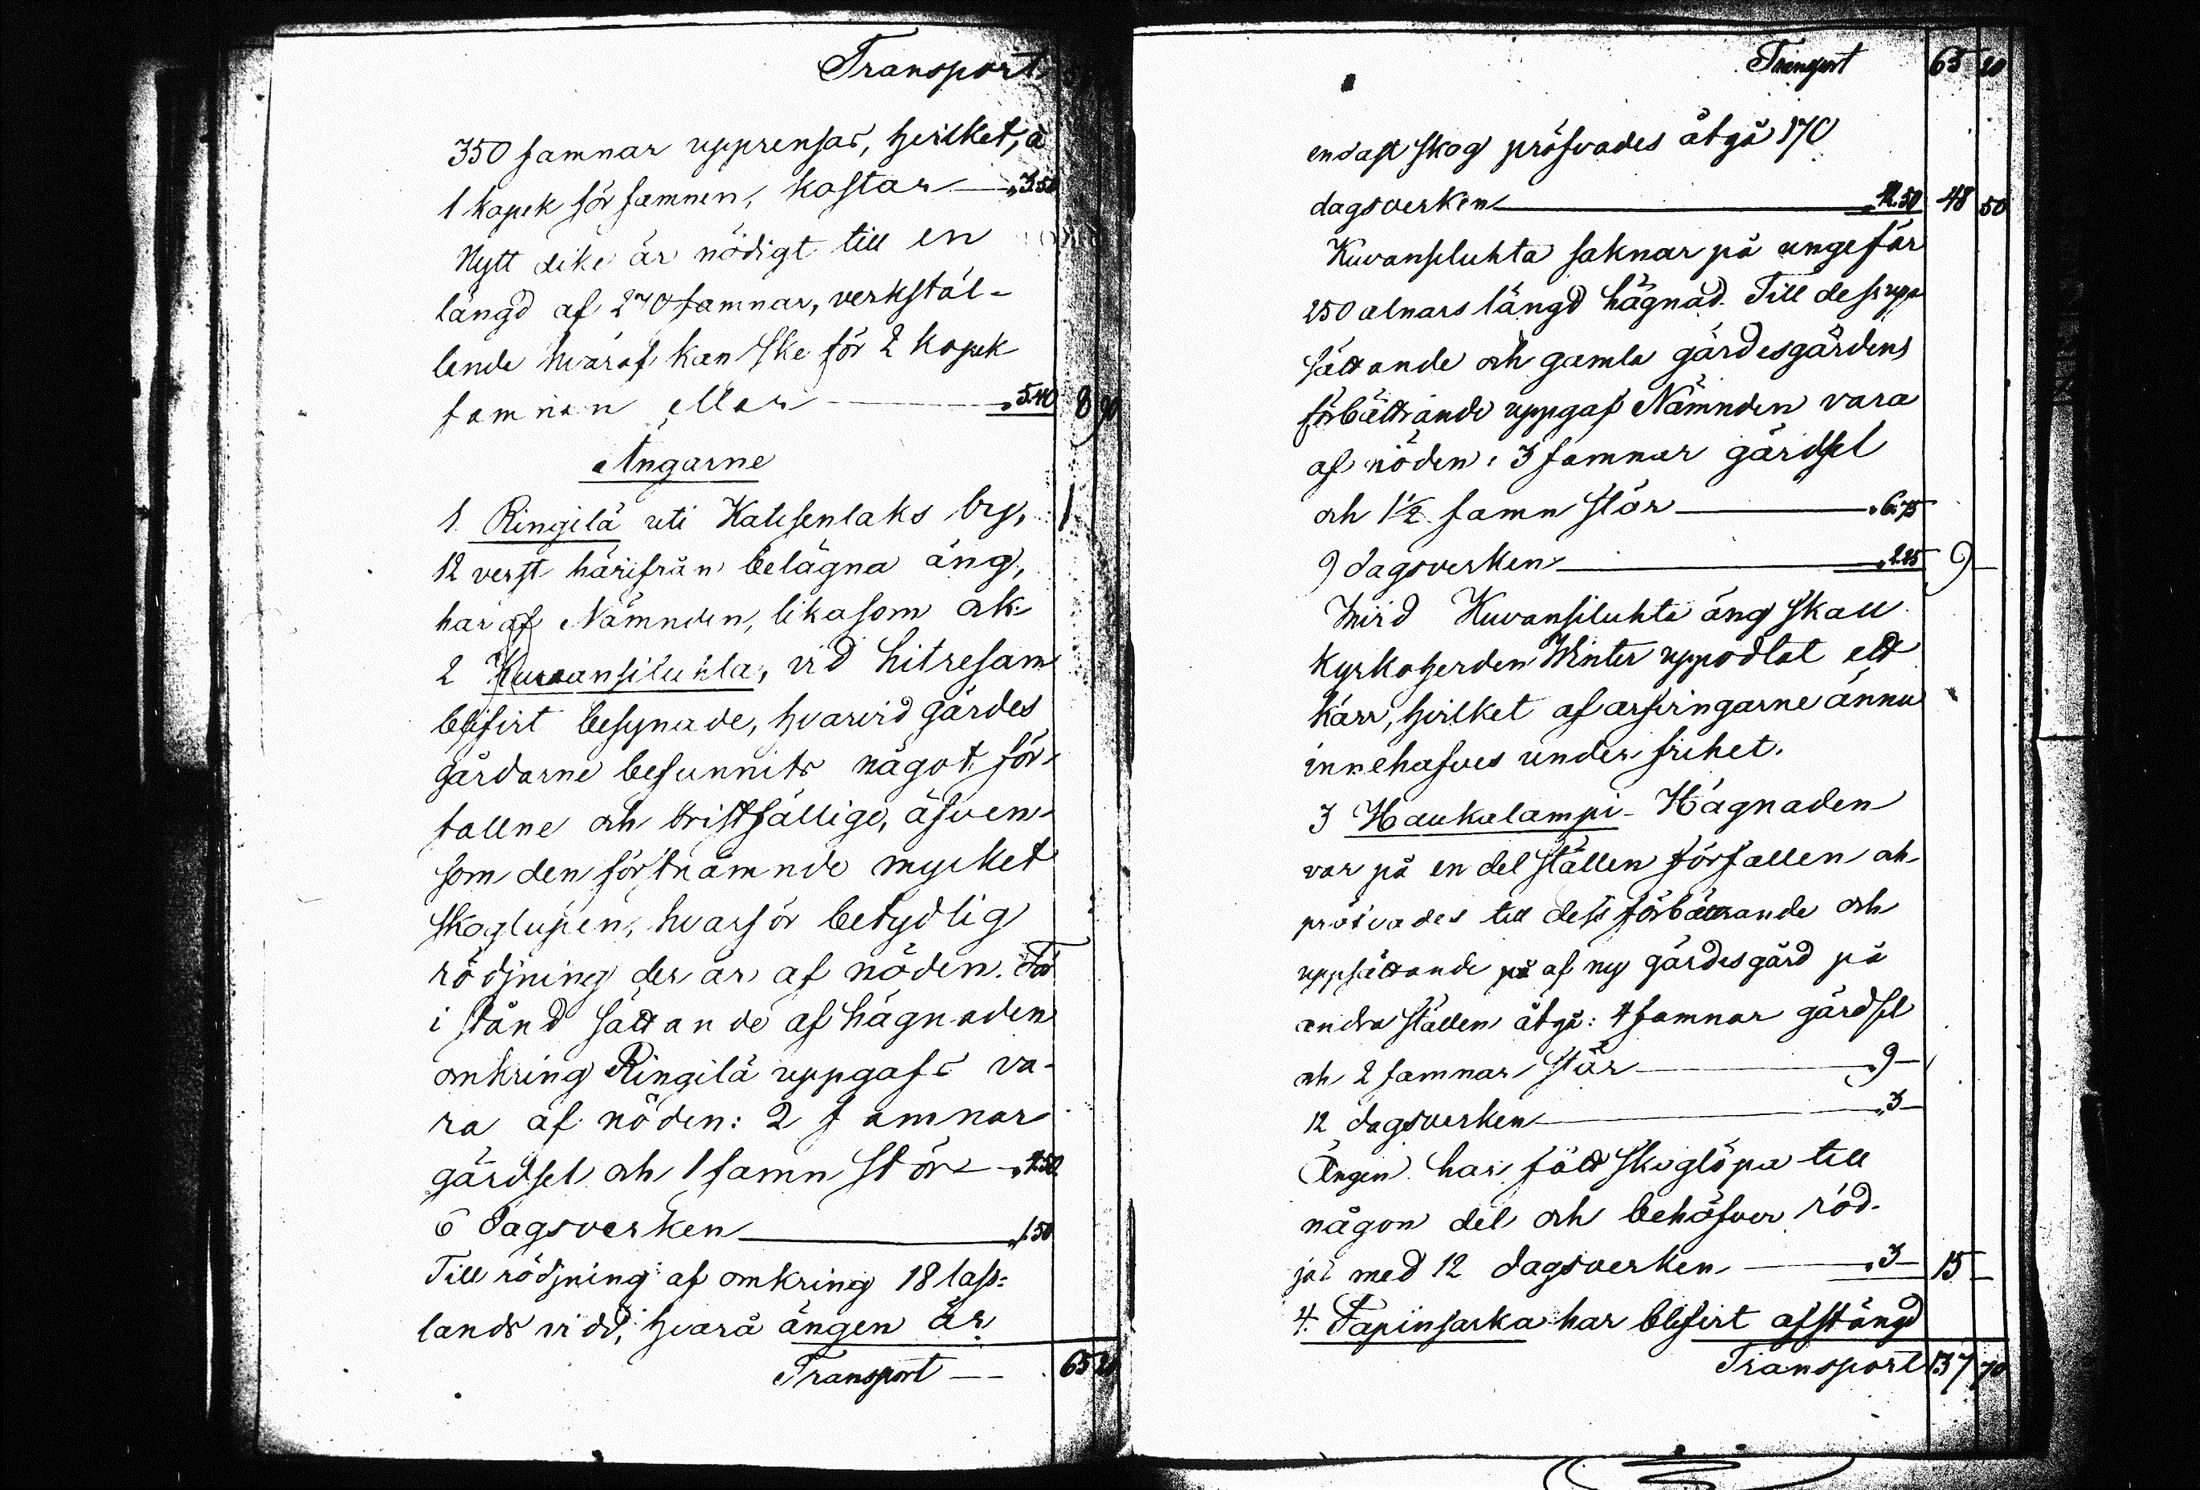 Transport
350 famnar upprensas, hvilket, à
1 kopek för famnen, kostar — „ 3.50
Nytt dike är nödigt till en
längd af 270 famnar, verkstäl-
lende hvaraf kan ske för 2 kopek
famnen eller — „ 5.40 8 90
Ängarne
1 Ringilä uti Katisenlaks by,
12 verst härifrån belägna äng,
har af Nämnden, likasom ock
2 Kuvansiluhta, vid hitresan
blifvit besynade, hvarvid gärdes
gårdarne befunnits något för-
fallne och bristfällige, äfven-
som den förstnämnde mycket
skoglupen, hvarför betydlig
rödjning der är af nöden. Till
i stånd sättande af hägnaden
omkring Ringilä uppgafs va-
ra af nöden: 2 famnar
gärdsel och 1 famn stör — „ 4.50
6 dagsverken — „ 1.50
Till rödjning af omkring 18 lass-
lands vidd, hvarå ängen är
Transport — 65 20
Transport 65 20
endast skog pröfvades åtgå 170
dagsverken — „ 42.50 48 50
Kuvansiluhta saknar på ungefär
250 alnars längd hägnad. Till dess upp
sättande och gamla gärdesgårdens
förbättrande uppgaf Nämnden vara
af nöden: 3 famnar gärdsel
och 1½ famn stör — „ 6.75
9 dagsverken — „ 2.25 9 —
Invid Kuvansiluhta äng skall
Kyrkoherden Winter uppodlat ett
kärr, hvilket af arfvingarne ännu
innehafves under frihet.
3 Haukalampi - Hägnaden
var på en del ställen förfallen och
pröfvades till dess förbättrande och
uppsättande på af ny gärdesgård på
andra ställen åtgå: 4 famnar gärdsel
och 2 famnar stör — „ 9 —
12 dagsverken — „ 3 —
Ängen har fått skoglöpa till
någon del och behöfver röd-
jas med 12 dagsverken — „ 3 — 15 —
4. Papinsarka har blifvit afstängd
Transport 137 70